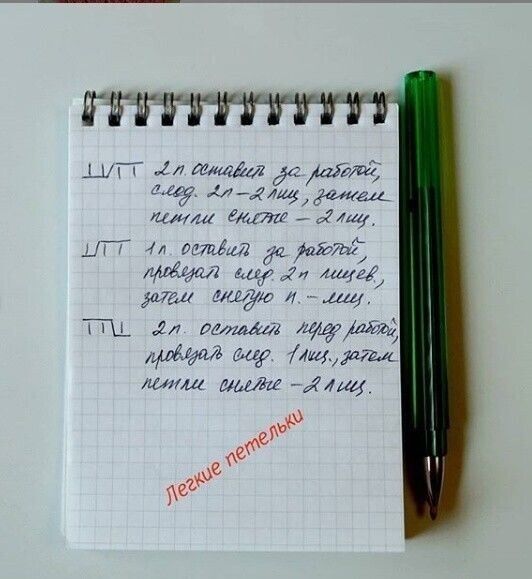 2 п. оставить за работой,
след. 2п – 2 лиц, затем
петли снятые – 2 лиц.
1 п. оставить за работой,
провязать след. 2 п лицев.,
затем снятую п. – лиц.
2 п. оставить перед работой,
провязать след. 1 лиц., затем
петли снятые – 2 лиц.
Легкие петельки